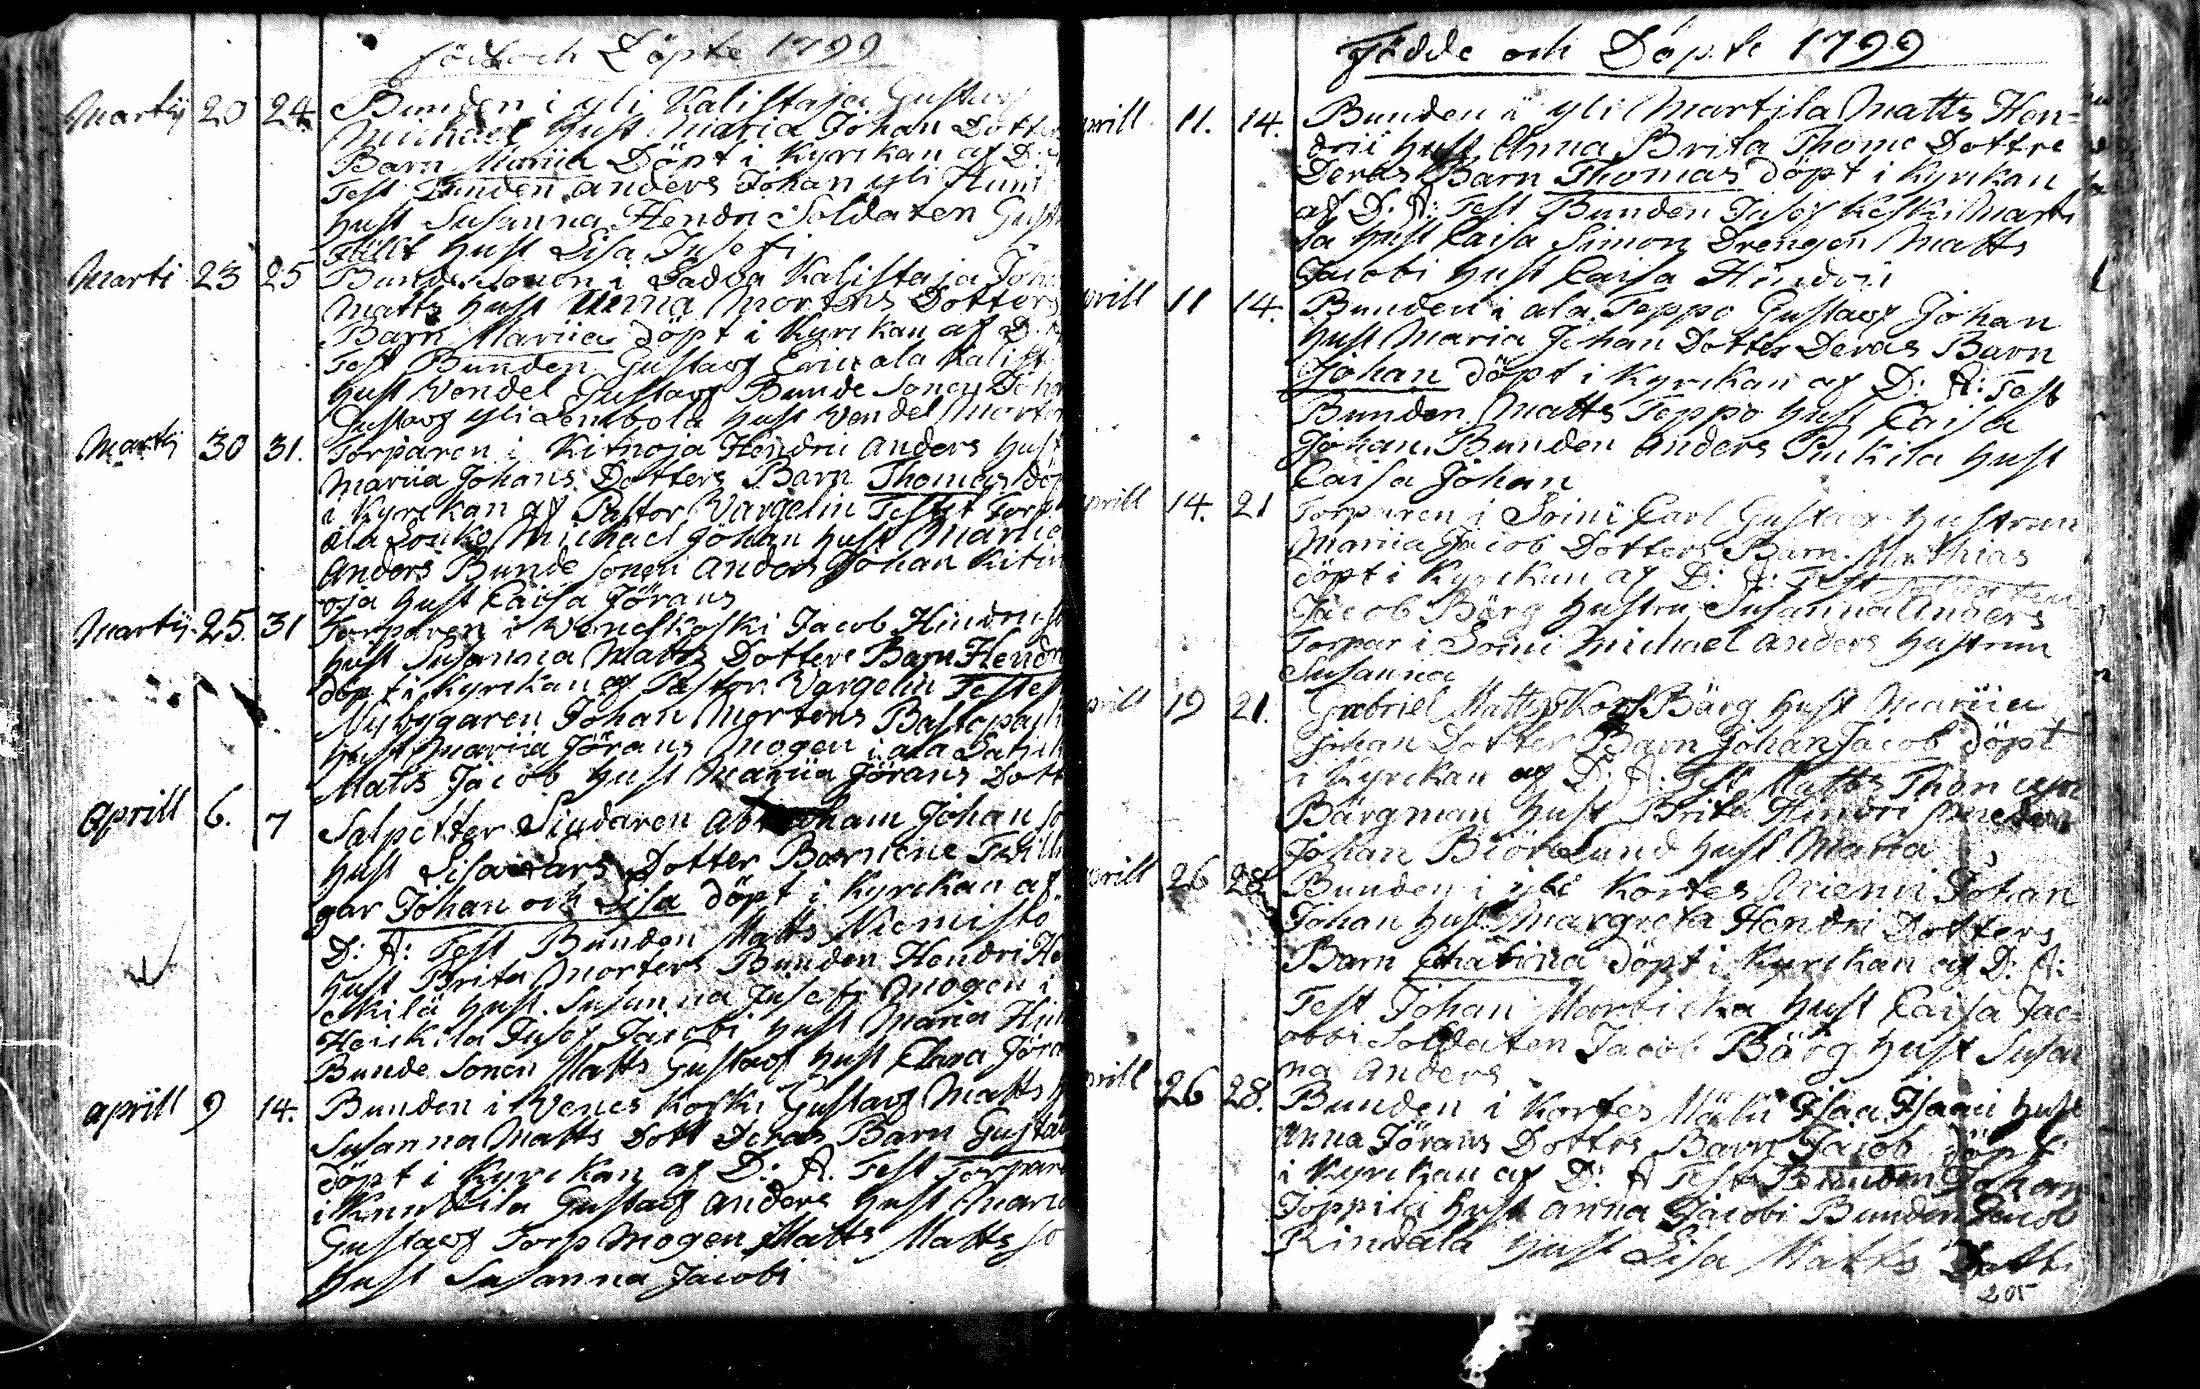 född och Döpte 1799
Martij 20 24. Bunden i yli Kalistaja Gustavs
Michael Hust Maria Johan Dotter
Barn Mariia Döpt i Kyrckan af D:
Test Bunden anders Johan yli
Hust Susanna Hendri Soldaten Gust
Fällt Hust Lisa Jusefi
Marti 23 25 Bunde Sonen i Kalistaja Joh
Matts Hust Anna Mortens Dotters
Barn Mariia döpt i Kyrckan af D:
Test Bunden Gustavf Eric ala Kalist
Hust Vendel Gustavf Bunde Sonen Joha
Gustavf yli Lembola Hust Vendel Morten
Martij 30 31. Torparen i Kitinoja Hendric anders Hust
Mariia Johans Dotters Barn Thomas döp
i Kyrckan af Pastor Vargelin Testes Torp
ala Louko Michael Johan Hust Mariia
anders Bunde sonen anders Johan Kitin
oja Hust Caisa Jörans
Martij 25. 31 Torparen i Veneskoski Jacob Hindrics
Hust Susanna Matts Dotters Barn Hendr
döpt i Kyrckan af Pastor Vargelin Testes
Nybyggaren Johan Mortens
Hust Mariia Jörans Mogen i ala
Matts Jacob Hust Mariia Jörans Dott
aprill 6. 7 Salpetter Siudaren abraham Johan so
Hust Lisa Lars Dotter Barnene Twilli
gar Johan och Lisa döpt i Kyrckan af
D: A: Test Bunden Matts Niemistö
Hust Brita Mortens Bunden Hendri He
ckilä Hust Susanna Jusefs Mogen i
Heickila Jusef Jacobi Hust Maria Hin
Bunde Sonen Matts Gustavf Hust Clara Jöra
aprill 9 14. Bunden i Venes koski Gustavf Matts H
Susanna Matts Dott Deras Barn Gustav
döpt i Kyrckan af D: A. Test Torpare
i Gustavf anders Hust Maria
Gustavf Torp Mogen Matts Matts so
Hust Susanna Jacobi
Födde och Döpte 1799
prill 11. 14. Bunden i yli Martila Matts Hen=
drii Hust Anna Brita Thome Dottre
Deras Barn Thomas döpt i Kyrckan
af D: A: Test Bunden Jusef Keski Marti
la Hust Caisa Simon Drengen Matts
Jacobi Hust Caisa Hindri
prill 11 14. Bunden i ala Teppo Gustavf Johan
Hust Maria Johan Dotter Deras Barn
Johan döpt i Kyrckan af D: A: Test
Bunden Matts Teppo Hust Caisa
Johan Bunden anders Pukila Hust
Caisa Johan
prill 14. 21 Torparen i Soini Carl Gustavf Hustrun
Mariia Jacob Dotters Barn Mathias
döpt i Kyrckan af D: A: Test Soldaten
Jacob Bärg Hustru Susanna Anders
Torpar i Soini Michael anders Hustrun
Susanna
prill 19 21. Gabriel Matts Skog Bärg Hust Mariia
Johan Dotter Barn Johan Jacob döpt
i Kyrckan af D: A: Test Matts Thom
Bärgman Hust Brita Hindri
Johan Biörklund Hust Maria
prill 26 28 Bunden i yli Kortes Niemi Johan
Johan Hust Margreta Hendri Dotters
Barn döpt i Kyrckan af D: A:
Test Johan Hust Caisa Jac=
obbi Soldaten Jacob Bärg Hust Susan
na Anders
prill 26 28. Bunden i Kortes Mäki Isaa Isaaci Hust
Anna Jörans Dotters Barn Jacob döpt
i Kyrckan af D: A Test Bunden Johan
Toppila Hust anna Jacobi Bunden Jacob
Rindala Hust Lisa Matts Dotter
205